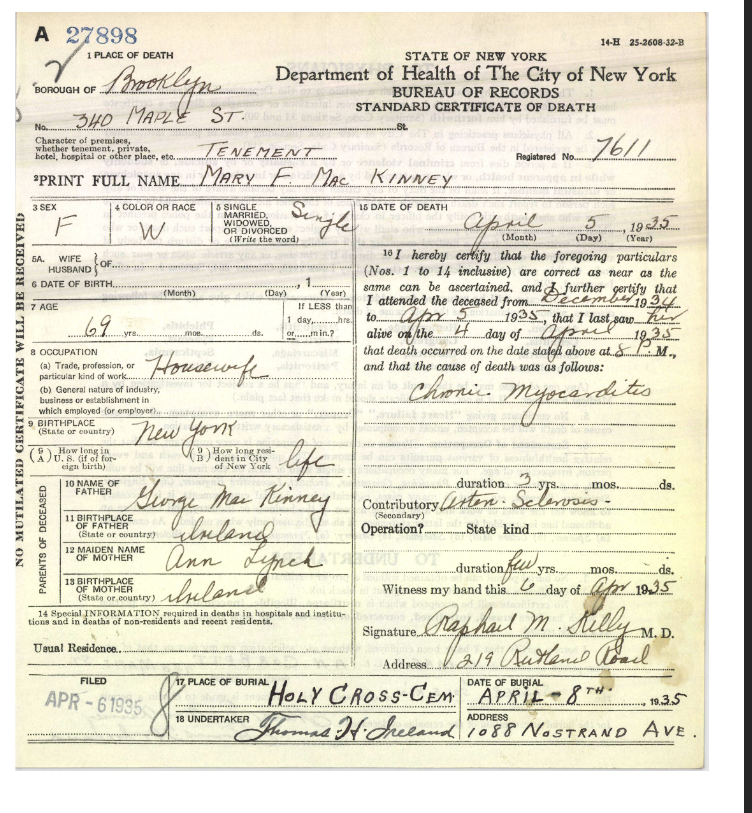 A 27898
14-H 25-2608-32-B
1 PLACE OF DEATH
STATE OF NEW YORK
Department of Health of The City of New York
BUREAU OF RECORDS
STANDARD CERTIFICATE OF DEATH
BOROUGH OF Brooklyn
No. 340 MAPLE ST. St.
Character of premises,
whether tenement, private,
hotel, hospital or other place, etc. TENEMENT
Registered No. 7611
2 PRINT FULL NAME MARY F. MAC KINNEY
NO MUTILATED CERTIFICATE WILL BE RECEIVED
3 SEX
F
4 COLOR OR RACE
W
5 SINGLE
MARRIED,
WIDOWED,
OR DIVORCED
(Write the word)
Single
5A. WIFE
HUSBAND } OF
6 DATE OF BIRTH , 1
(Month) (Day) (Year)
7 AGE
69 yrs. mos. ds.
If LESS than
1 day, hrs.
or min.?
8 OCCUPATION
(a) Trade, profession, or
particular kind of work Housewife
(b) General nature of industry,
business or establishment in
which employed (or employer)
9 BIRTHPLACE
(State or country) New York
(9 A) How long in
U. S. (if of for-
eign birth)
(9 B) How long resi-
dent in City
of New York life
PARENTS OF DECEASED
10 NAME OF
FATHER George Mac Kinney
11 BIRTHPLACE
OF FATHER
(State or country) Ireland
12 MAIDEN NAME
OF MOTHER Ann Lynch
13 BIRTHPLACE
OF MOTHER
(State or country) Ireland
14 Special INFORMATION required in deaths in hospitals and institu-
tions and in deaths of non-residents and recent residents.
Usual Residence
15 DATE OF DEATH
April 5, 1935
(Month) (Day) (Year)
16 I hereby certify that the foregoing particulars
(Nos. 1 to 14 inclusive) are correct as near as the
same can be ascertained, and I further certify that
I attended the deceased from December 1934
to Apr 5 1935, that I last saw her
alive on the 4 day of April 1935
that death occurred on the date stated above at 8 P. M.,
and that the cause of death was as follows:
Chronic Myocarditis
duration 3 yrs. mos. ds.
Contributory Arterio- Sclerosis-
(Secondary)
Operation? State kind
duration few yrs. mos. ds.
Witness my hand this 6 day of Apr 1935
Signature Raphael M. Kelly M. D.
Address 219 Rutland Road
FILED
APR - 6 1935
17 PLACE OF BURIAL
HOLY CROSS-CEM
DATE OF BURIAL
APRIL - 8TH, 1935
18 UNDERTAKER
Thomas H. Ireland
ADDRESS
1088 NOSTRAND AVE.